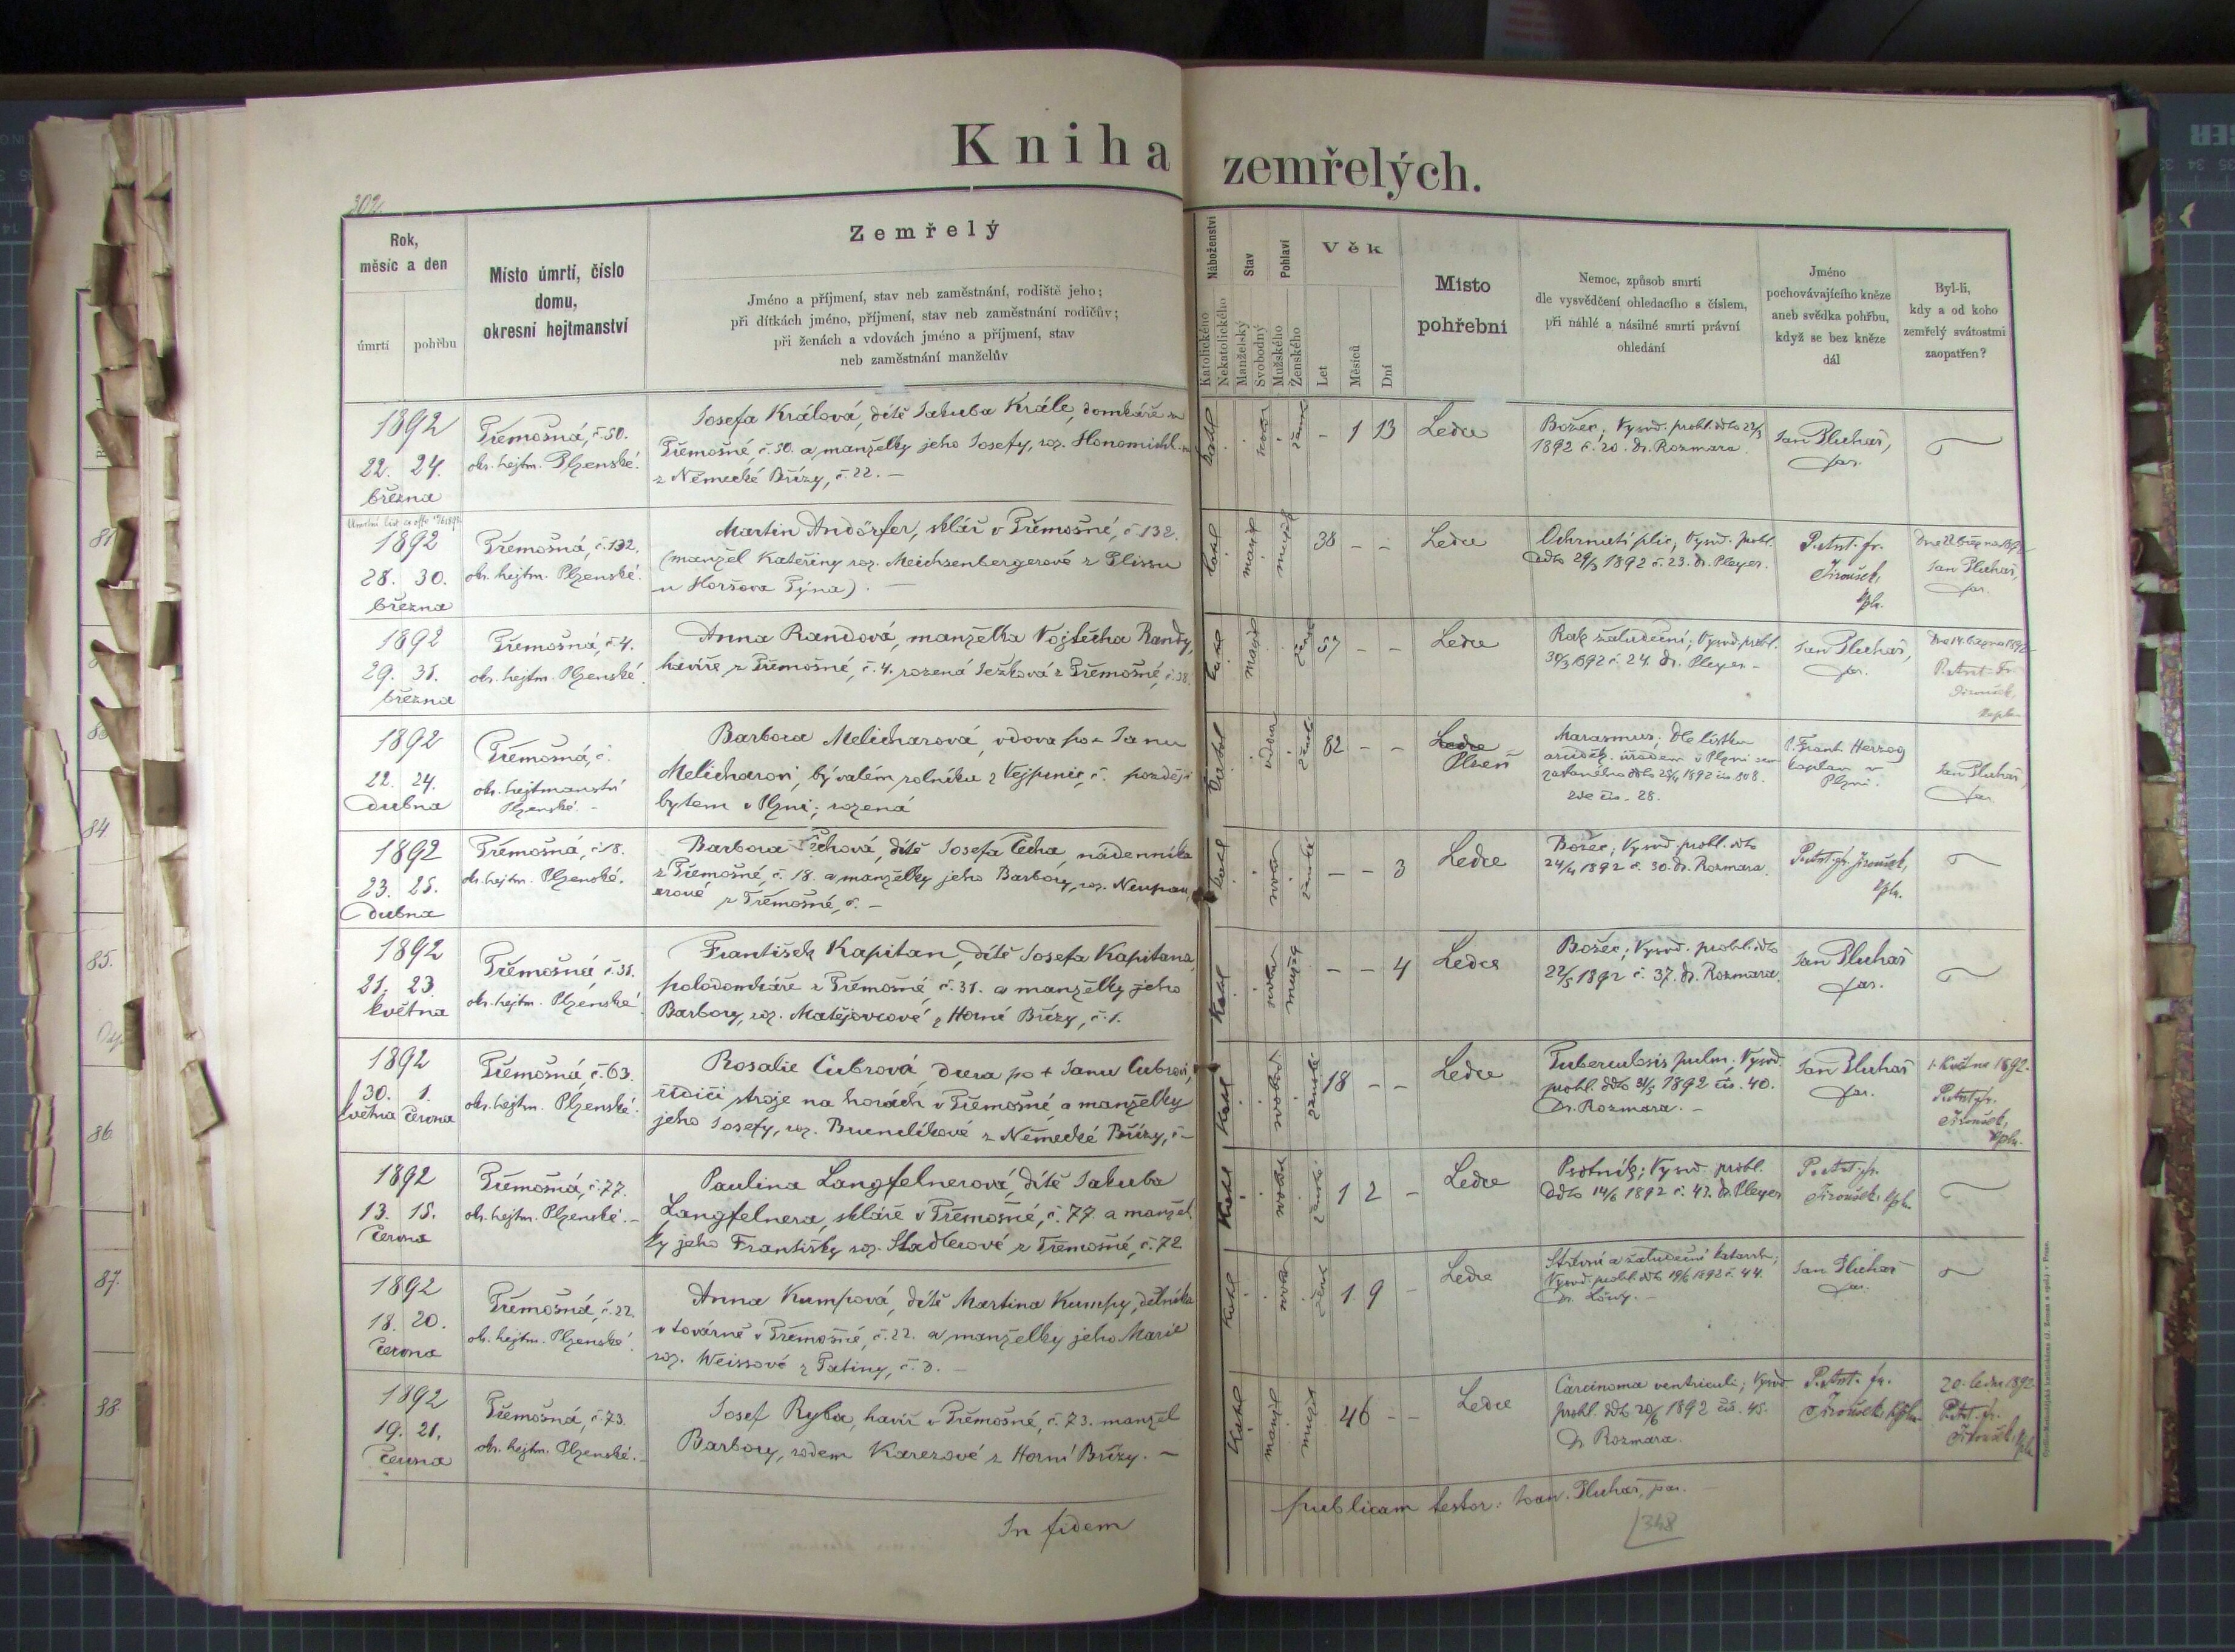 Kniha zemřelých.
302
Rok,
měsíc a den
úmrtí
pohřbu
Místo úmrtí, číslo
domu,
okresní hejtmanství
Zemřelý
Jméno a příjmení, stav neb zaměstnání, rodiště jeho;
při dítkách jméno, příjmení, stav neb zaměstnání rodičův;
při ženách a vdovách jméno a příjmení, stav
neb zaměstnání manželův
Náboženství
Katolického
Nekatolického
Stav
Manželský
Svobodný
Pohlaví
Mužského
Ženského
Věk
Let
Měsíců
Dní
Místo
pohřební
Nemoc, způsob smrti
dle vysvědčení ohledacího s číslem,
při náhlé a násilné smrti právní
ohledání
Jméno
pochovávajícího kněze
aneb svědka pohřbu,
když se bez kněze
dál
Byl-li,
kdy a od koho
zemřelý svátostmi
zaopatřen?
1892
22. 24.
března
Třemošná, č. 50.
okr. hejtm. Plzenské.
Josefa Králová, dítě Jakuba Krále, domkáře z
Třemošné, č. 50. a manželky jeho Josefy, roz. Honomichl
z Německé Břízy, č. 22. –
kathl
– 1 13
Ledce
Božec; Vysvěd. prohl. ddto 22/3
1892 č. 20. Dr. Rozmara.
Jan Pluhař,
far.
1892
28. 30.
března
Třemošná, č. 132.
okr. hejtm. Plzenské.
Martin Andörfer, sklář v Třemošné, č. 132.
(manžel Kateřiny roz. Meichsenbergerové z Glissu
u Horšova Týna). –
kathl
38 – –
Ledce
Ochrnutí plic; Vysvěd. prohl.
ddto 29/3 1892 č. 23. Dr. Pleyer.
P. Ant. fr.
Jiroušek,
kpln.
Jan Pluhař,
far.
1892
29. 31.
března
Třemošná, č. 4.
okr. hejtm. Plzenské.
Anna Randová, manželka Vojtěcha Randy,
havíře z Třemošné, č. 4. rozená Ježková z Třemošné, č. 38.
57 – –
Ledce
Rak žaludeční; Vysvěd. prohl.
30/3 1892 č. 24. Dr. Pleyer –
Jan Pluhař,
far.
P. Ant. Fr.
Jiroušek,
1892
22. 24.
dubna
Třemošná, č.
okr. hejtmanství
Plzenské. –
Barbora Melicharová, vdova po + Janu
Melicharovi, bývalém rolníku z Vejprnic, č. později
bytem v Plzni; rozená
82 – –
Ledce
Plzeň
Marasmus; Dle lístku
zde čís. 28.
P. Frant. Herzog
kaplan v
Plzni.
Jan Pluhař,
far.
1892
23. 25.
dubna
Třemošná, č. 18.
okr. hejtm. Plzenské.
Barbora Čechová, dítě Josefa Čecha, nádenníka
z Třemošné, č. 18. a manželky jeho Barbory, roz. Neupau
erové z Třemošné, č. –
kathl
– – 3
Ledce
Božec; Vysvěd. prohl. ddto
24/4 1892 č. 30. Dr. Rozmara.
P. Ant. fr. Jiroušek,
kpln.
1892
21. 23.
května
Třemošná č. 31.
okr. hejtm. Plzenské.
František Kapitan, dítě Josefa Kapitana,
polodomkáře z Třemošné, č. 31. a manželky jeho
Barbory, roz. Matějovcové z Horní Břízy, č. 1.
Kathl
– – 4
Ledce
Božec; Vysvěd. prohl. ddto
22/5 1892 č. 37. Dr. Rozmara.
Jan Pluhař
far.
1892
30. 1.
května června
Třemošná č. 63.
okr. hejtm. Plzenské.
Rosalie Cubrová dcera po + Janu Cubrovi,
řídiči stroje na horách v Třemošné a manželky
jeho Josefy, roz. Brunclíkové z Německé Břízy, č –
Kathl
18 – –
Ledce
Tuberculosis pulm; Vysvěd.
prohl. ddto 31/5 1892 čís. 40.
Dr. Rozmara. –
Jan Pluhař
far.
1. Května 1892.
P. Ant. fr.
Jiroušek,
kpln.
1892
13. 15.
června
Třemošná, č. 77.
okr. hejtm. Plzenské. –
Paulina Langfelnerová, dítě Jakuba
Langfelnera, skláře v Třemošné, č. 77. a manžel
ky jeho Františky roz. Stadlerové z Třemošné, č. 72
Kathl
1 2 –
Ledce
Psotník; Vysvěd. prohl.
ddto 14/6 1892 č. 43. Dr. Pleyer
P. Ant. fr.
Jiroušek, kpln.
1892
18. 20.
června
Třemošná, č. 22.
okr. hejtm. Plzenské.
Anna Kumpová, dítě Martina Kumpy, dělníka
v továrně v Třemošné, č. 22. a manželky jeho Marie
roz. Weissové z Tatiny, č. 8. –
Kathl
1 9 –
Ledce
Střevní a žaludeční katarrh;
Vysvěd. prohl. ddto 19/6 1892 č. 44.
Dr. Löwy. –
Jan Pluhař
far.
1892
19. 21.
června
Třemošná, č. 73.
okr. hejtm. Plzenské. –
Josef Ryba, havíř v Třemošné, č. 73. manžel
Barbory, rodem Karezové z Horní Břízy. –
Kathl
46 – –
Ledce
Carcinoma ventriculi; Vysvěd.
prohl. ddto 20/6 1892 čís. 45.
Dr Rozmara.
P. Ant. fr.
Jiroušek, kpln.
20. ledna 1892.
P. Ant. fr.
Jiroušek, kpln
In fidem publicam testor: Joan. Pluhař, par. –
348
81
84
85.
86.
87.
88.